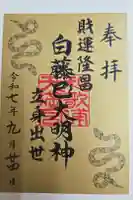 奉拝
財運隆昌
白藤巳大明神
立身出世
令和七年九月廿四日